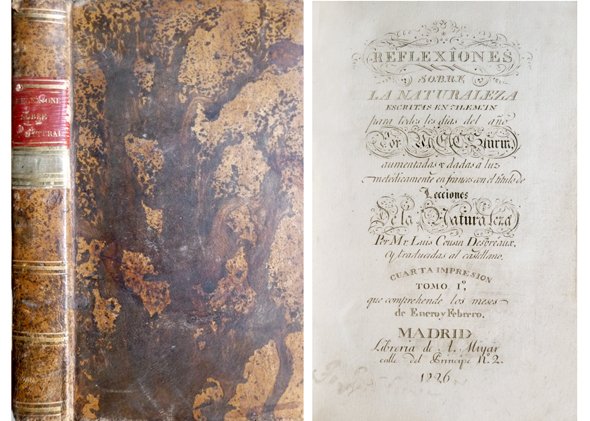 REFLEXIONE
SOBRE
REFLEXÎONES
SOBRE
LA NATURALEZA
ESCRITAS EN ALEMAN
para todos los dias del año
Por
aumentadas y dadas a luz
metódicamente en frances con el titulo de
Lecciones
De la Naturaleza
Por Mr. Luis Cousin Despreaux,
y traducidas al castellano.
CUARTA IMPRESION
TOMO Iº
que comprehende los meses
de Enero y Febrero.
MADRID
Libreria de A. Miyar
calle del Principe N. 2.
1826